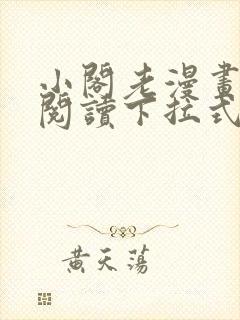 小閣老漫畫
閱讀下拉式
黃天蕩